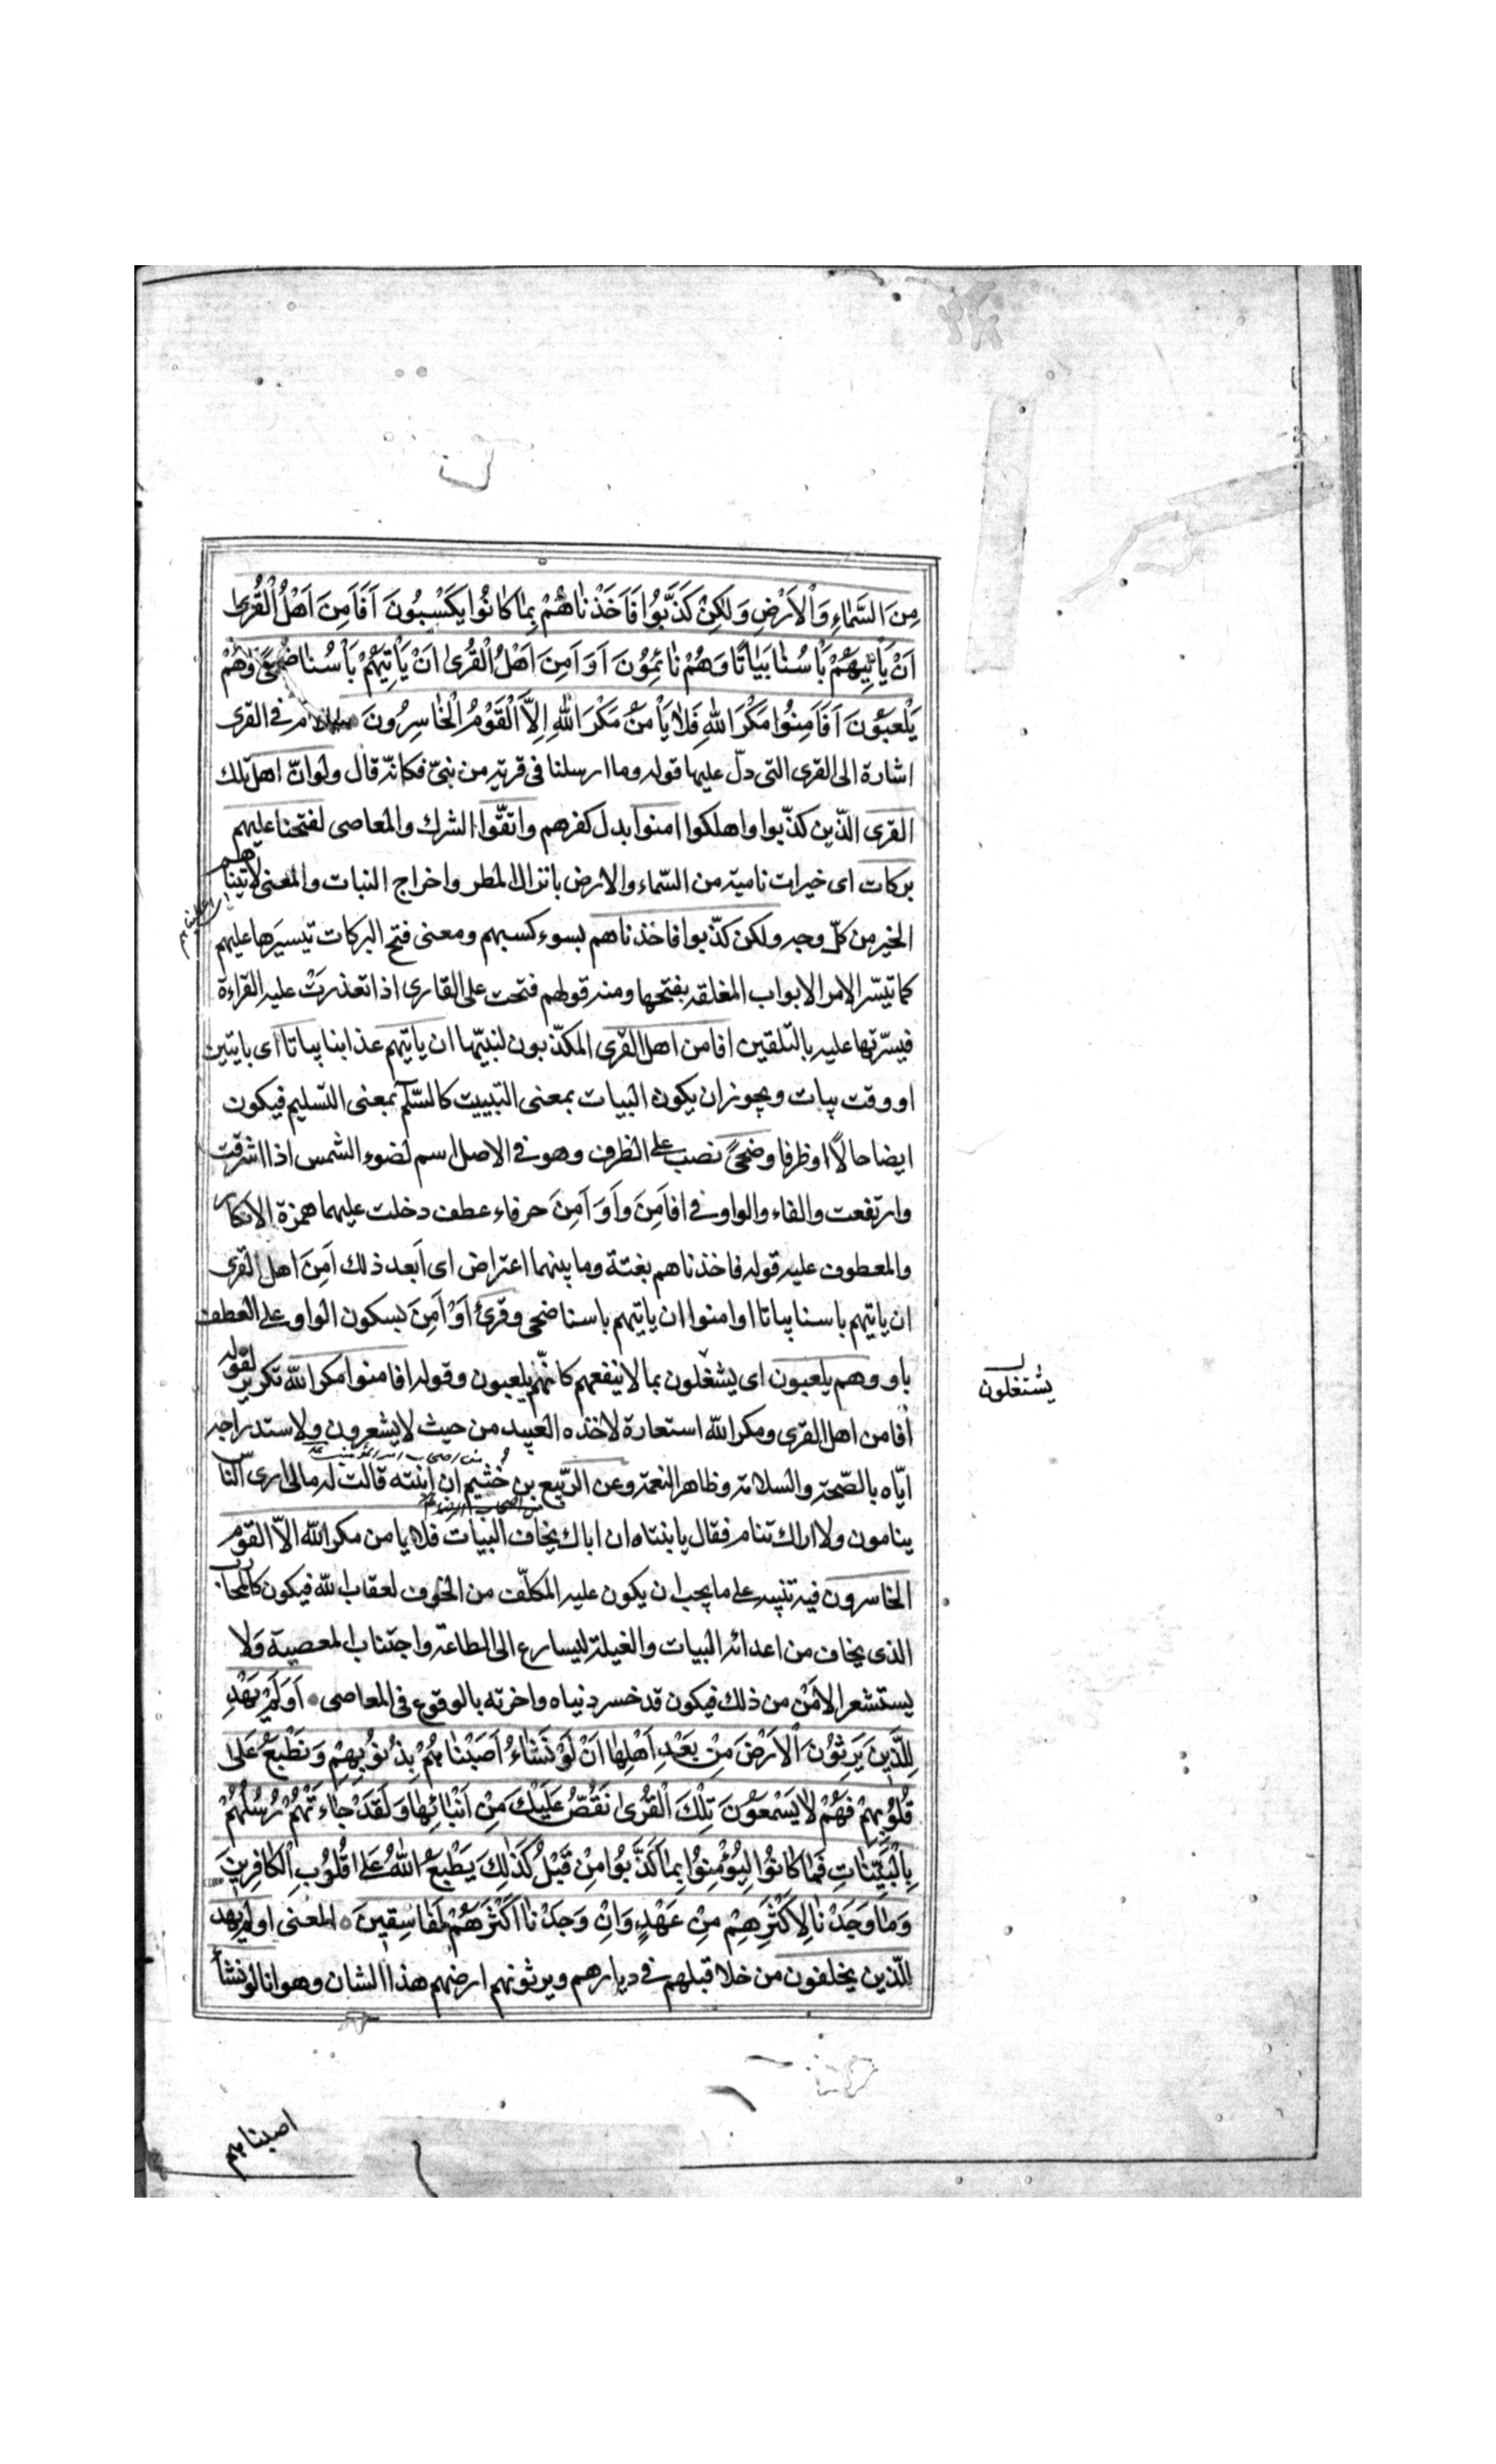 مِنَ السَّمٰاءِ وَالْاَرْضِ وَلٰكِنْ كَذَّبُوا فَاَخَذْنٰاهُمْ بِمٰا كٰانُوا يَكْسِبُونَ اَفَاَمِنَ اَهْلُ الْقُرىٰ
اَنْ يَأْتِيَهُمْ بَأْسُنٰا بَيٰاتًا وَهُمْ نٰائِمُونَ اَوَ اَمِنَ اَهْلُ الْقُرىٰ اَنْ يَأْتِيَهُمْ بَأْسُنٰا ضُحًى وَهُمْ
يَلْعَبُونَ اَفَاَمِنُوا مَكْرَ اللّٰهِ فَلٰا يَأْمَنُ مَكْرَ اللّٰهِ اِلَّا الْقَوْمُ الْخٰاسِرُونَ في القرى
اشارة الى القرى التى دلّ عليها قوله وما ارسلنا فى قرية من نبىّ فكانّه قال ولو انّ اهل تلك
القرى الذّين كذّبوا واهلكوا امنوا بدل كفرهم واتقّوا الشرك والمعاصى لفتحنا عليهم
بركات اى خيرات نامية من السّماء والارض بانزال المطر واخراج النبات والمعنى لاتيناهم
الخير من كلّ وجه ولكن كذّبوا فاخذناهم بسوء كسبهم ومعنى فتح البركات تيسيَرها عليهم
كما تيسّر الامر الابواب المغلقه بفتحها ومنه قولهم فتحت على القارى اذا تعذرَتْ عليه القراءة
فيسّرتها عليه بالتلقين افامن اهل القرى المكذّبون لنبيّها ان ياتيهم عذابنا بياتا اى بايتين
او وقت بيات ويجوز ان يكون البيات بمعنى التبييت كالسّلم بمعنى التسليم فيكون
ايضا حالًا او ظرفا وضحىً نصب على الظرف وهو فى الاصل اسم لضوء الشمس اذا اشرقت
وارتفعت والفاء والواو فى افاَمِنَ وَاَوَ اَمِنَ حرفاء عطف دخلت عليهما همزة الانكار
والمعطوف عليه قوله فاخذناهم بغتة وما بينهما اعتراض اى اَبعد ذلك اَمِنَ اهل القرى
ان ياتيهم باسنا بياتا او امنوا ان ياتيهم باسنا ضحى وقرئ اَوْ اَمِنَ بسكون الواو على العطف
باو وهم يلعبون اى يشغلون بما لا ينفعهم كانّهم يلعبون وقوله افامنوا مكر اللّه تكرير لقوله
اَفامن اهل القرى ومكر اللّه استعارة لاخذه العبيد من حيث لا يشعرون ولاستدراجه
ايّاه بالصّحة والسلامة وظاهر النعمة وعن الربّيع بن خشيم ان ابنته قالت له مالى ارى النّاس
ينامون ولا اراك تنام فقال يا بنتاه ان اباك يخاف البيات فلا يامن مكر اللّه الّا القوم
الخاسرون فيه تنبيه على ما يجب ان يكون عليه المكلّف من الخوف لعقاب اللّه فيكون كالمحارب
الذى يخاف من اعدائه البيات والغيلة ليسارع الى الطاعة واجتناب المعصية وَلا
يستشعر الاَمْن من ذلك فيكون قد خسر دنياه واخرته بالوقوع فى المعاصى اَوَلَمْ يَهْدِ
لِلَّذِينَ يَرِثُونَ الْاَرْضَ مِنْ بَعْدِ اَهْلِهٰا اَنْ لَوْ نَشٰاءُ اَصَبْنٰاهُمْ بِذُنُوبِهِمْ وَنَطْبَعُ عَلىٰ
قُلُوبِهِمْ فَهُمْ لٰا يَسْمَعُونَ تِلْكَ الْقُرىٰ نَقُصُّ عَلَيْكَ مِنْ اَنْبٰائِهٰا وَلَقَدْ جٰاءَتْهُمْ رُسُلُهُمْ
بِالْبَيِّنٰاتِ فَمٰا كٰانُوا لِيُؤْمِنُوا بِمٰا كَذَّبُوا مِنْ قَبْلُ كَذٰلِكَ يَطْبَعُ اللّٰهُ عَلىٰ قُلُوبِ الْكٰافِرِينَ
وَمٰا وَجَدْنٰا لِاَكْثَرِهِمْ مِنْ عَهْدٍ وَاِنْ وَجَدْنٰا اَكْثَرَهُمْ لَفٰاسِقِينَ المعنى اولم يهد
للّذين يخلفون من خلا قبلهم فى ديارهم ويرثونهم ارضهم هذا الشان وهو انا لو نشأ
يشتغلون
اصبناهم